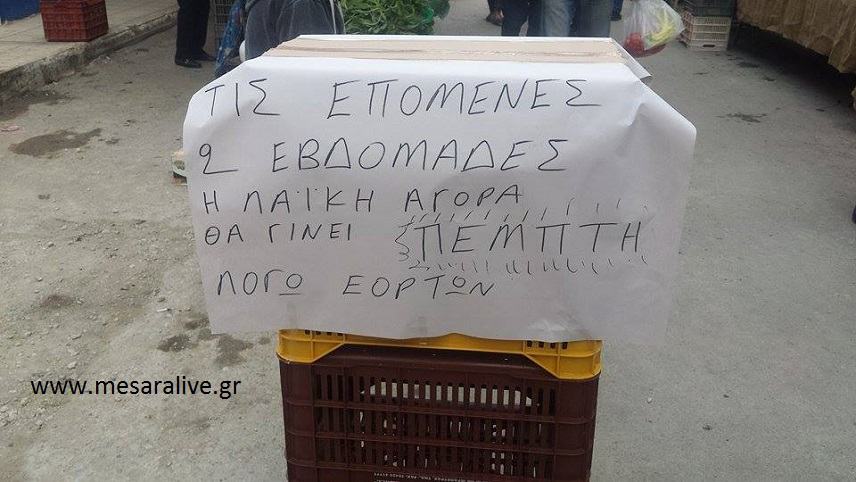 ΤΙΣ ΕΠΟΜΕΝΕΣ
2 ΕΒΔΟΜΑΔΕΣ
Η ΛΑΪΚΗ ΑΓΟΡΑ
ΘΑ ΓΙΝΕΙ ΠΕΜΠΤΗ
ΛΟΓΩ ΕΟΡΤΩΝ
www.mesaralive.gr